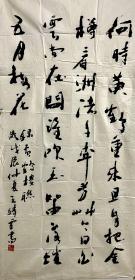 何時黃鶴重來且自把金
樽看洲渚千年芳草今日白
雲尚在問誰吹玉笛落江城
五月梅花
黃鶴樓聯
戊辰仲夏王